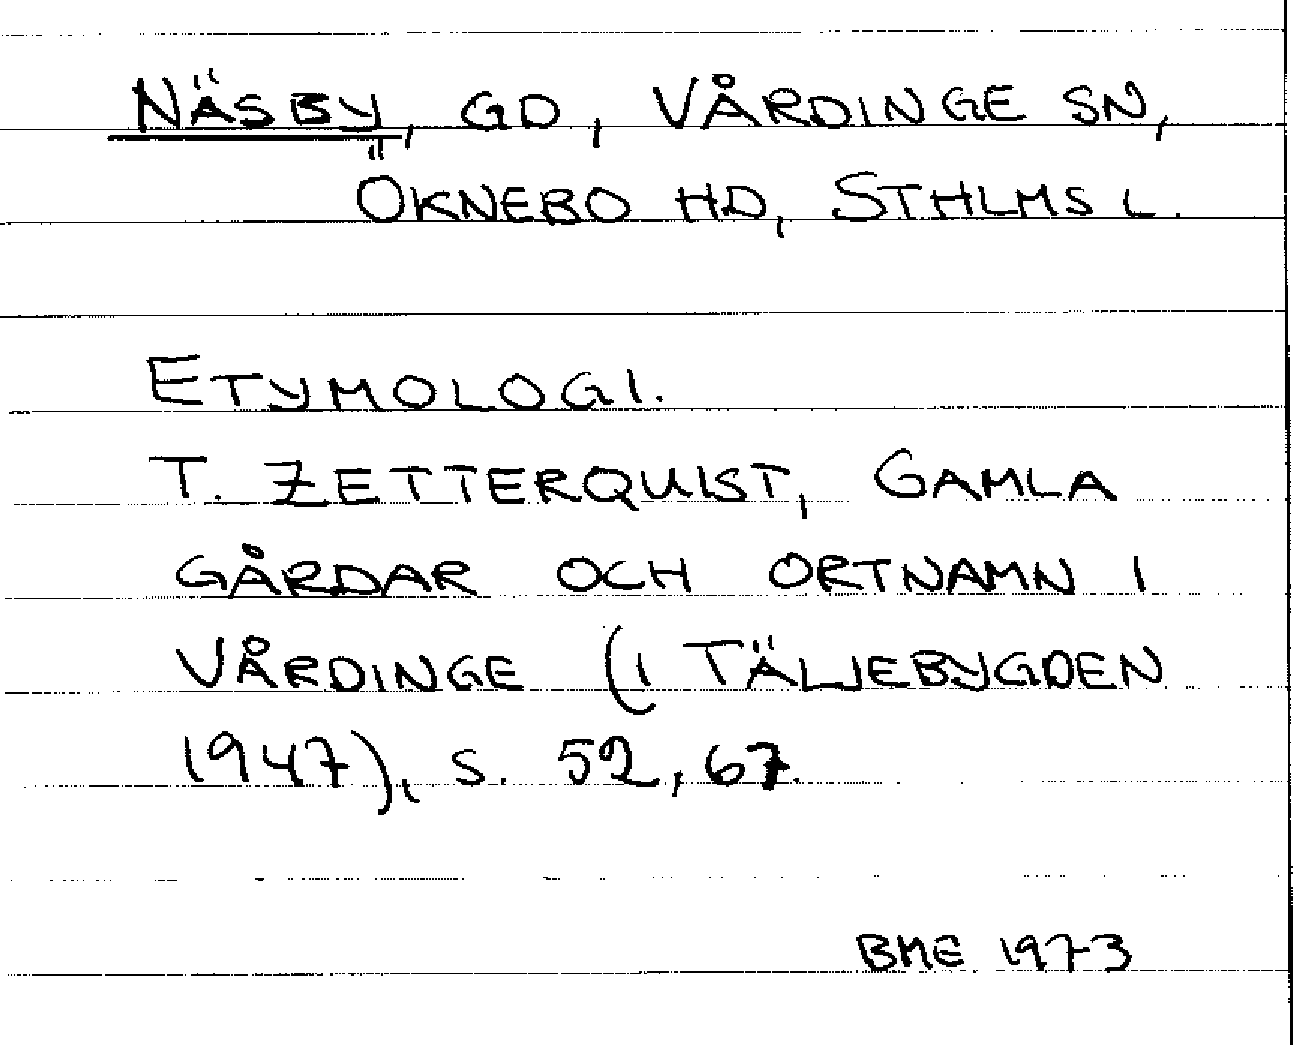 NÄSBY, GD, VÅRDINGE SN,
ÖKNEBO HD, STHLMS L.
ETYMOLOGI.
T. ZETTERQUIST, GAMLA
GÅRDAR OCH ORTNAMN I
VÅRDINGE (I TÄLJEBYGDEN
1947), S. 52, 67.
BME 1973